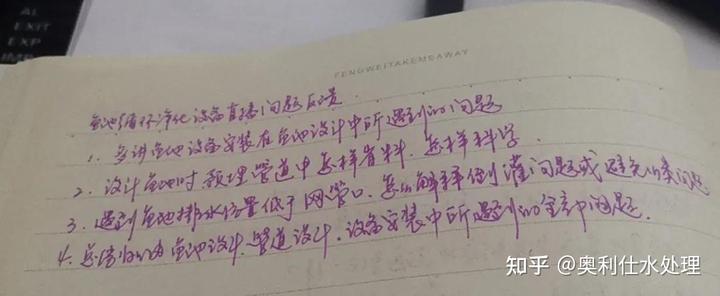 AL
EXIT
EXP
FENGWEITAKEMEAWAY
鱼池循环净化设备直播问题反馈
1. 多讲鱼池设备安装在鱼池设计中所遇到的问题
2. 设计鱼池时预埋管道中怎样省料.怎样科学.
3. 遇到鱼池排水位置低于网管口.怎么解释倒灌问题或避免此类问题
4. 总结归纳鱼池设计.管道设计.设备安装中所遇到的全部问题.
知乎 @奥利仕水处理